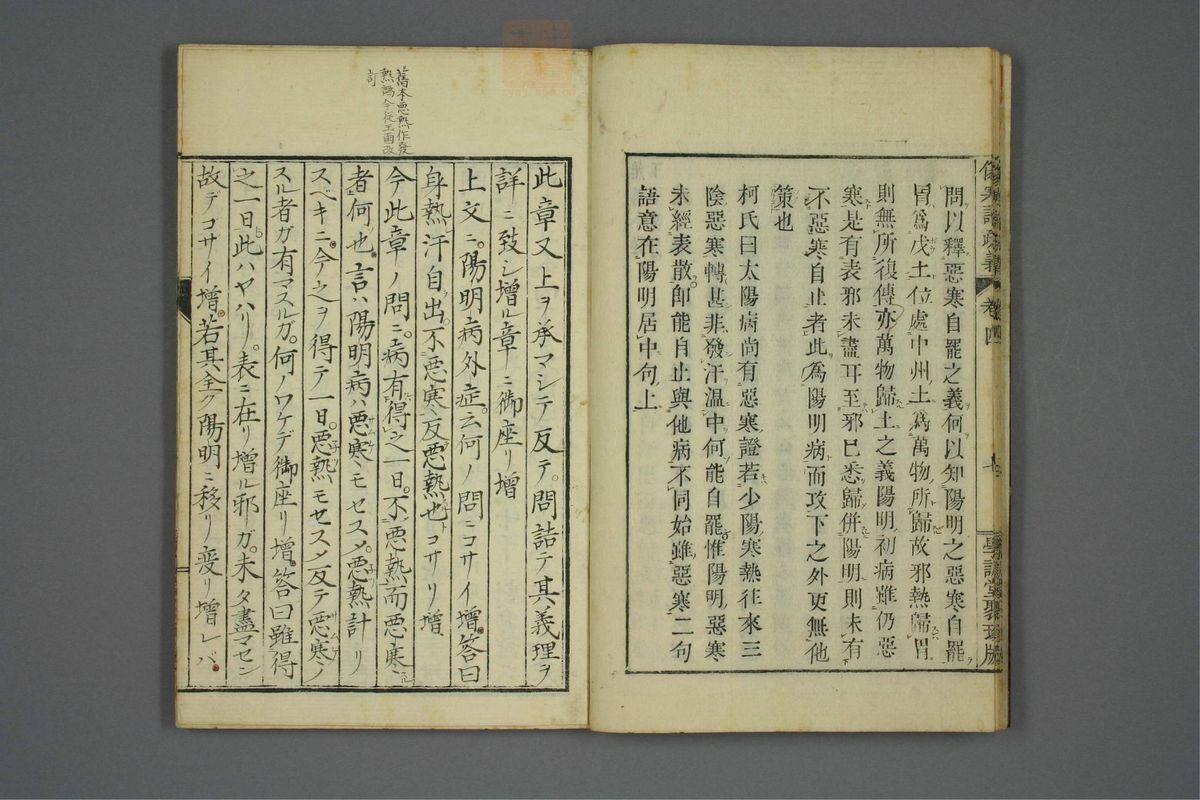 問以釋惡寒自罷之義何以知陽明之惡寒自罷
胃爲戊土位處中州土爲萬物所歸故邪熱歸胃
則無所復傳亦萬物歸土之義陽明初病雖仍惡
寒是有表邪未盡耳至邪已悉歸併陽明則未有
不惡寒自止者此爲陽明病而攻下之外更無他
策也
柯氏曰太陽病尚有惡寒證若少陽寒熱往來三
陰惡寒轉甚非發汗溫中何能自罷惟陽明惡寒
未經表散卽能自止與他病不同始雖惡寒二句
語意在陽明居中句上
舊本惡熱作發
熱譌今從玉函改
訂
此章又上ヲ承マシテ反テ問詰テ其義理ヲ
詳ニ致シ增ル章ニ御座リ增
上文ニ陽明病外症云何ノ問ニコサイ增答曰
身熱汗自出不惡寒反惡熱也コサリ增
今此章ノ問ニ病有得之一日不惡熱而惡寒
者何也言ハ陽明病ハ惡寒モセスメ惡熱計リ
スベキニ今之ヲ得テ一日惡熱モセスメ反テ惡寒ノ
スル者ガ有マスルガ何ノワケデ御座リ增答曰雖得
之一日此ハヤハリ表ニ在リ增ル邪ガ未タ盡マセン
故デコサイ增若其全ク陽明ニ移リ変リ增レバ
卷四